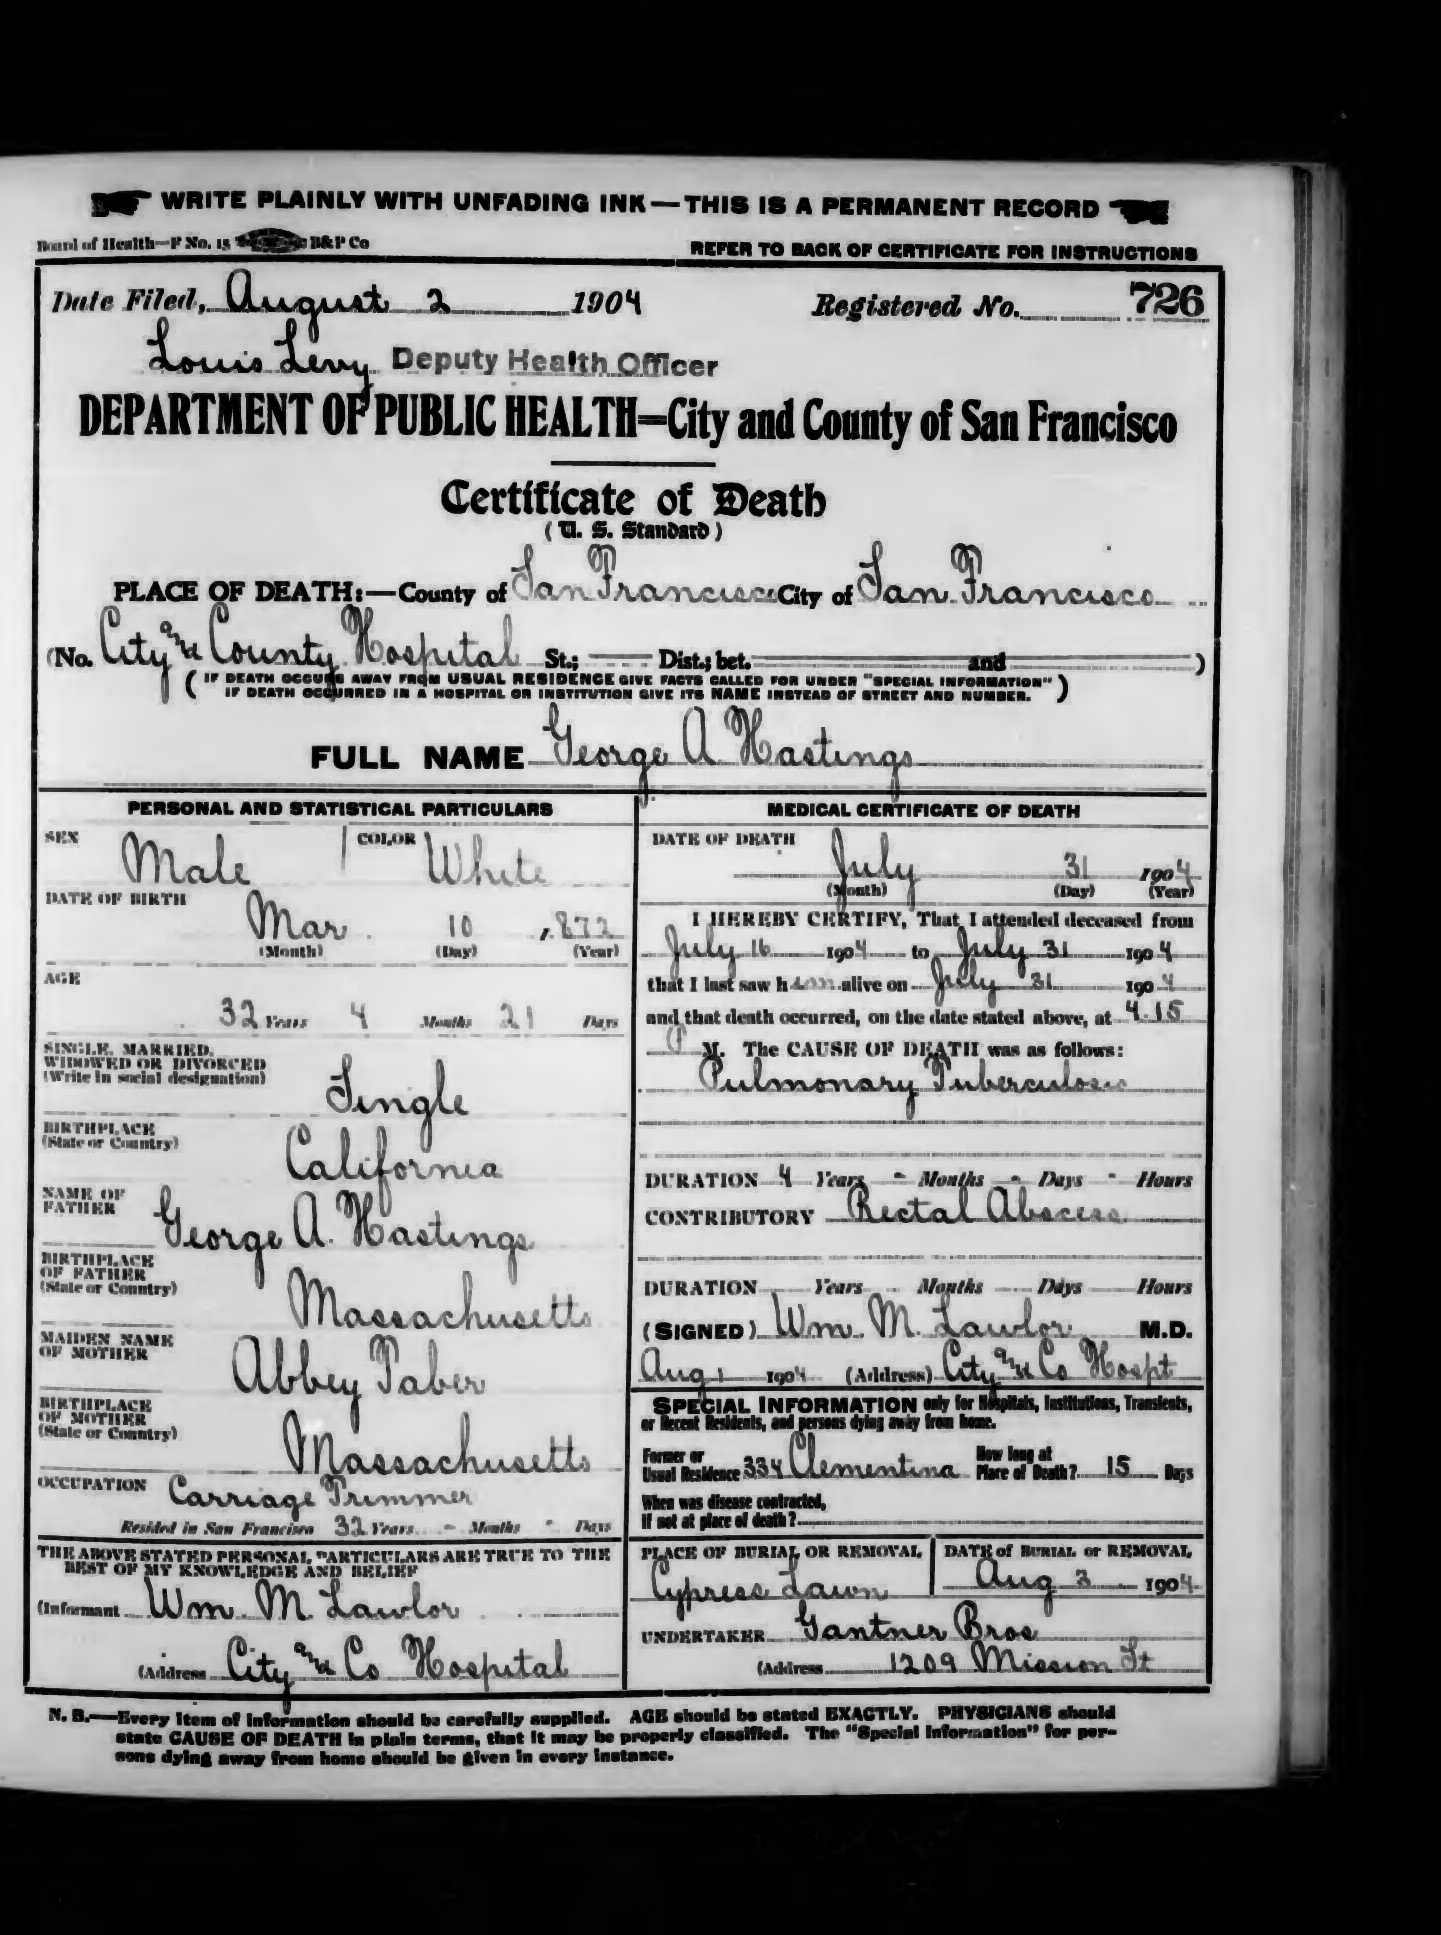 WRITE PLAINLY WITH UNFADING INK—THIS IS A PERMANENT RECORD
Board of Health—F No. 15 B&P Co
REFER TO BACK OF CERTIFICATE FOR INSTRUCTIONS
Date Filed, August 2 1904 Registered No. 726
Louis Levy Deputy Health Officer
DEPARTMENT OF PUBLIC HEALTH—City and County of San Francisco
Certificate of Death
(U. S. Standard)
PLACE OF DEATH:—County of San Francisco City of San Francisco
(No. City and County Hospital St.; Dist.; bet. and )
( IF DEATH OCCURS AWAY FROM USUAL RESIDENCE GIVE FACTS CALLED FOR UNDER "SPECIAL INFORMATION" )
IF DEATH OCCURRED IN A HOSPITAL OR INSTITUTION GIVE ITS NAME INSTEAD OF STREET AND NUMBER.
FULL NAME George A. Hastings
PERSONAL AND STATISTICAL PARTICULARS
SEX Male COLOR White
DATE OF BIRTH
Mar 10 1872
(Month) (Day) (Year)
AGE
32 Years 4 Months 21 Days
SINGLE, MARRIED,
WIDOWED OR DIVORCED
(Write in social designation)
Single
BIRTHPLACE
(State or Country)
California
NAME OF
FATHER
George A. Hastings
BIRTHPLACE
OF FATHER
(State or Country)
Massachusetts
MAIDEN NAME
OF MOTHER
Abbey Taber
BIRTHPLACE
OF MOTHER
(State or Country)
Massachusetts
OCCUPATION Carriage Trimmer
Resided in San Francisco 32 Years - Months - Days
THE ABOVE STATED PERSONAL PARTICULARS ARE TRUE TO THE
BEST OF MY KNOWLEDGE AND BELIEF
(Informant Wm. M. Lawlor
(Address City and Co Hospital
MEDICAL CERTIFICATE OF DEATH
DATE OF DEATH
July 31 1904
(Month) (Day) (Year)
I HEREBY CERTIFY, That I attended deceased from
July 16 1904 to July 31 1904
that I last saw him alive on July 31 1904
and that death occurred, on the date stated above, at 4.15
P M. The CAUSE OF DEATH was as follows:
Pulmonary Tuberculosis
DURATION 4 Years - Months - Days - Hours
CONTRIBUTORY Rectal Abscess
DURATION Years Months Days Hours
(SIGNED) Wm. M. Lawlor M.D.
Aug 1 1904 (Address) City and Co Hospt
SPECIAL INFORMATION only for Hospitals, Institutions, Transients,
or Recent Residents, and persons dying away from home.
Former or
Usual Residence 334 Clementina
How long at
Place of Death? 15 Days
When was disease contracted,
If not at place of death?
PLACE OF BURIAL OR REMOVAL
Cypress Lawn
DATE of BURIAL or REMOVAL
Aug 3 1904
UNDERTAKER Gantner Bros
(Address 1209 Mission St
N. B.—Every item of information should be carefully supplied. AGE should be stated EXACTLY. PHYSICIANS should
state CAUSE OF DEATH in plain terms, that it may be properly classified. The "Special Information" for per-
sons dying away from home should be given in every instance.